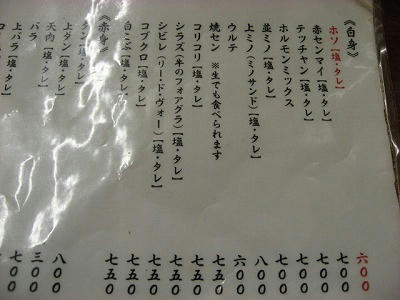 《白身》
ホソ【塩・タレ】
赤センマイ【塩・タレ】
テッチャン【塩・タレ】
ホルモンミックス
並ミノ【塩・タレ】
上ミノ(ミノサンド)【塩・タレ】
ウルテ
焼セン ※生でも食べられます
コリコリ【塩・タレ】
シラズ(牛のフォアグラ)【塩・タレ】
シビレ(リ・ド・ヴォー)【塩・タレ】
コブクロ【塩・タレ】
白こぶ【塩・タレ】
《赤身》
タン【塩・タレ】
上タン【塩・タレ】
天肉【塩・タレ】
バラ
上バラ【塩・タレ】
六〇〇
七〇〇
七〇〇
七〇〇
七〇〇
八〇〇
六〇〇
七五〇
七五〇
七五〇
七五〇
七五〇
八〇〇
三〇〇
七〇〇